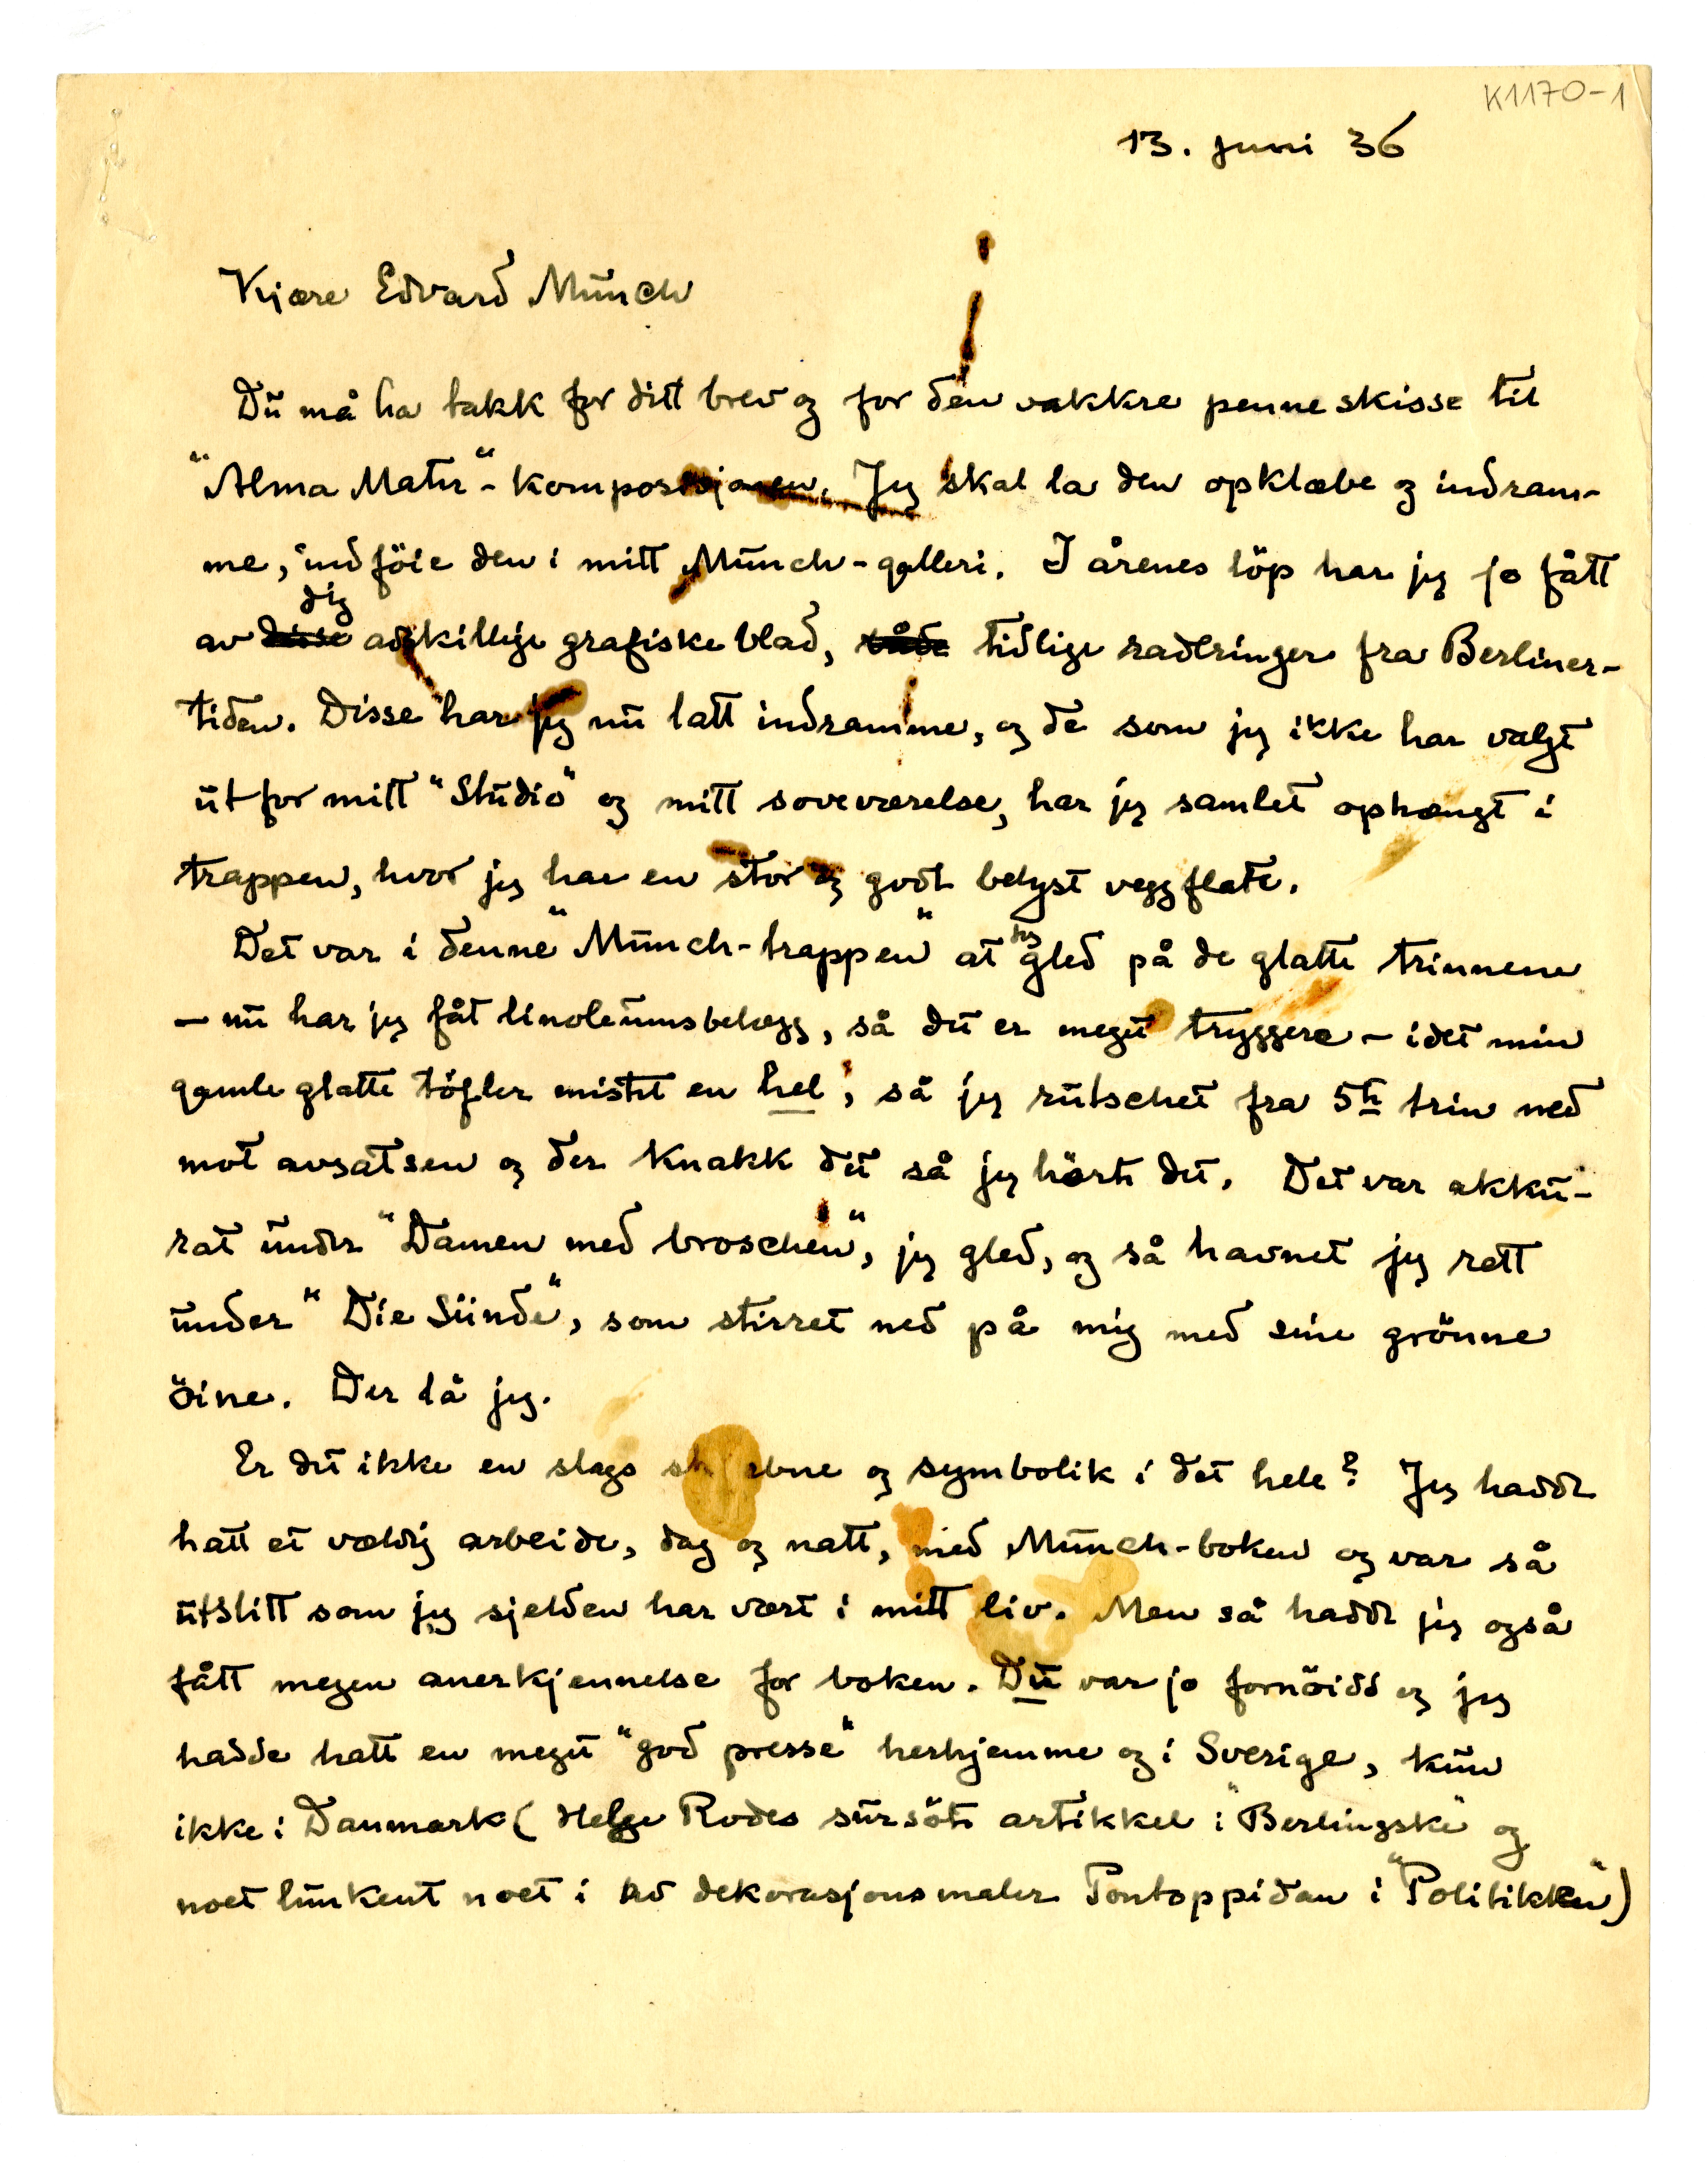 K1170-1
13. juni 36
Kjære Edvard Munch
Du må ha takk for ditt brev og for den vakkre penneskisse til
"Alma Mater"-komposisjonen. Jeg skal la den opklæbe og indram-
me, indföie den i mitt Munch-galleri. I årenes löp har jeg jo fått
dig
av disse adskillige grafiske blad, både tidlige raderinger fra Berliner-
tiden. Disse har jeg nu latt indramme, og de som jeg ikke har valgt
ut for mitt "Studio" og mitt soveværelse, har jeg samlet ophængt i
trappen, hvor jeg har en stor og godt belyst veggflate.
Det var i denne "Munch-trappen" at jeg gled på de glatte trinnene
– nu har jeg fåt linoleumsbelegg, så det er meget tryggere – idet min
gamle glatte töfler mistet en hel, så jeg rutschet fra 5te trin ned
mot avsatsen og der knakk det så jeg hörte det. Det var akku-
rat under "Damen med broschen", jeg gled, og så havnet jeg rett
under "Die Sünde", som stirret ned på mig med sine grönne
öine. Der lå jeg.
Er det ikke en slags skjæbne og symbolik i det hele? Jeg hadde
hatt et vældig arbeide, dag og natt, med Munch-boken og var så
utslitt som jeg sjelden har vært i mitt liv. Men så hadde jeg også
fått megen anerkjennelse for boken. Du var jo fornöid og jeg
hadde hatt en meget "god presse" herhjemme og i Sverige, kun
ikke i Danmark (Helge Rodes sursöte artikkel i "Berlingske" og
noet lunkent noet i av dekorasjonsmaler Pontoppidan i "Politikken")